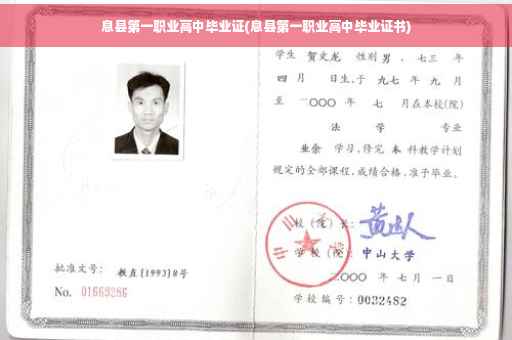 息县第一职业高中毕业证(息县第一职业高中毕业证书)
学生 贺文龙 性别 男 、七三 年
四 月 日生,于 九七 年 九 月
至 二〇〇〇 年 七 月在本校(院)
法 学 专业
业余 学习,修完 本 科教学计划
规定的全部课程,成绩合格,准予毕业。
校(院)长:
学 校(院): 中山大学
二〇〇〇 年 七 月 一 日
学校编号: 0032482
批准文号: 教直[1993]8号
No. 01669286